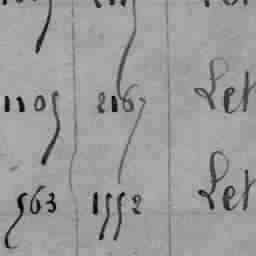 1105 2167 Let
563 1552 Let